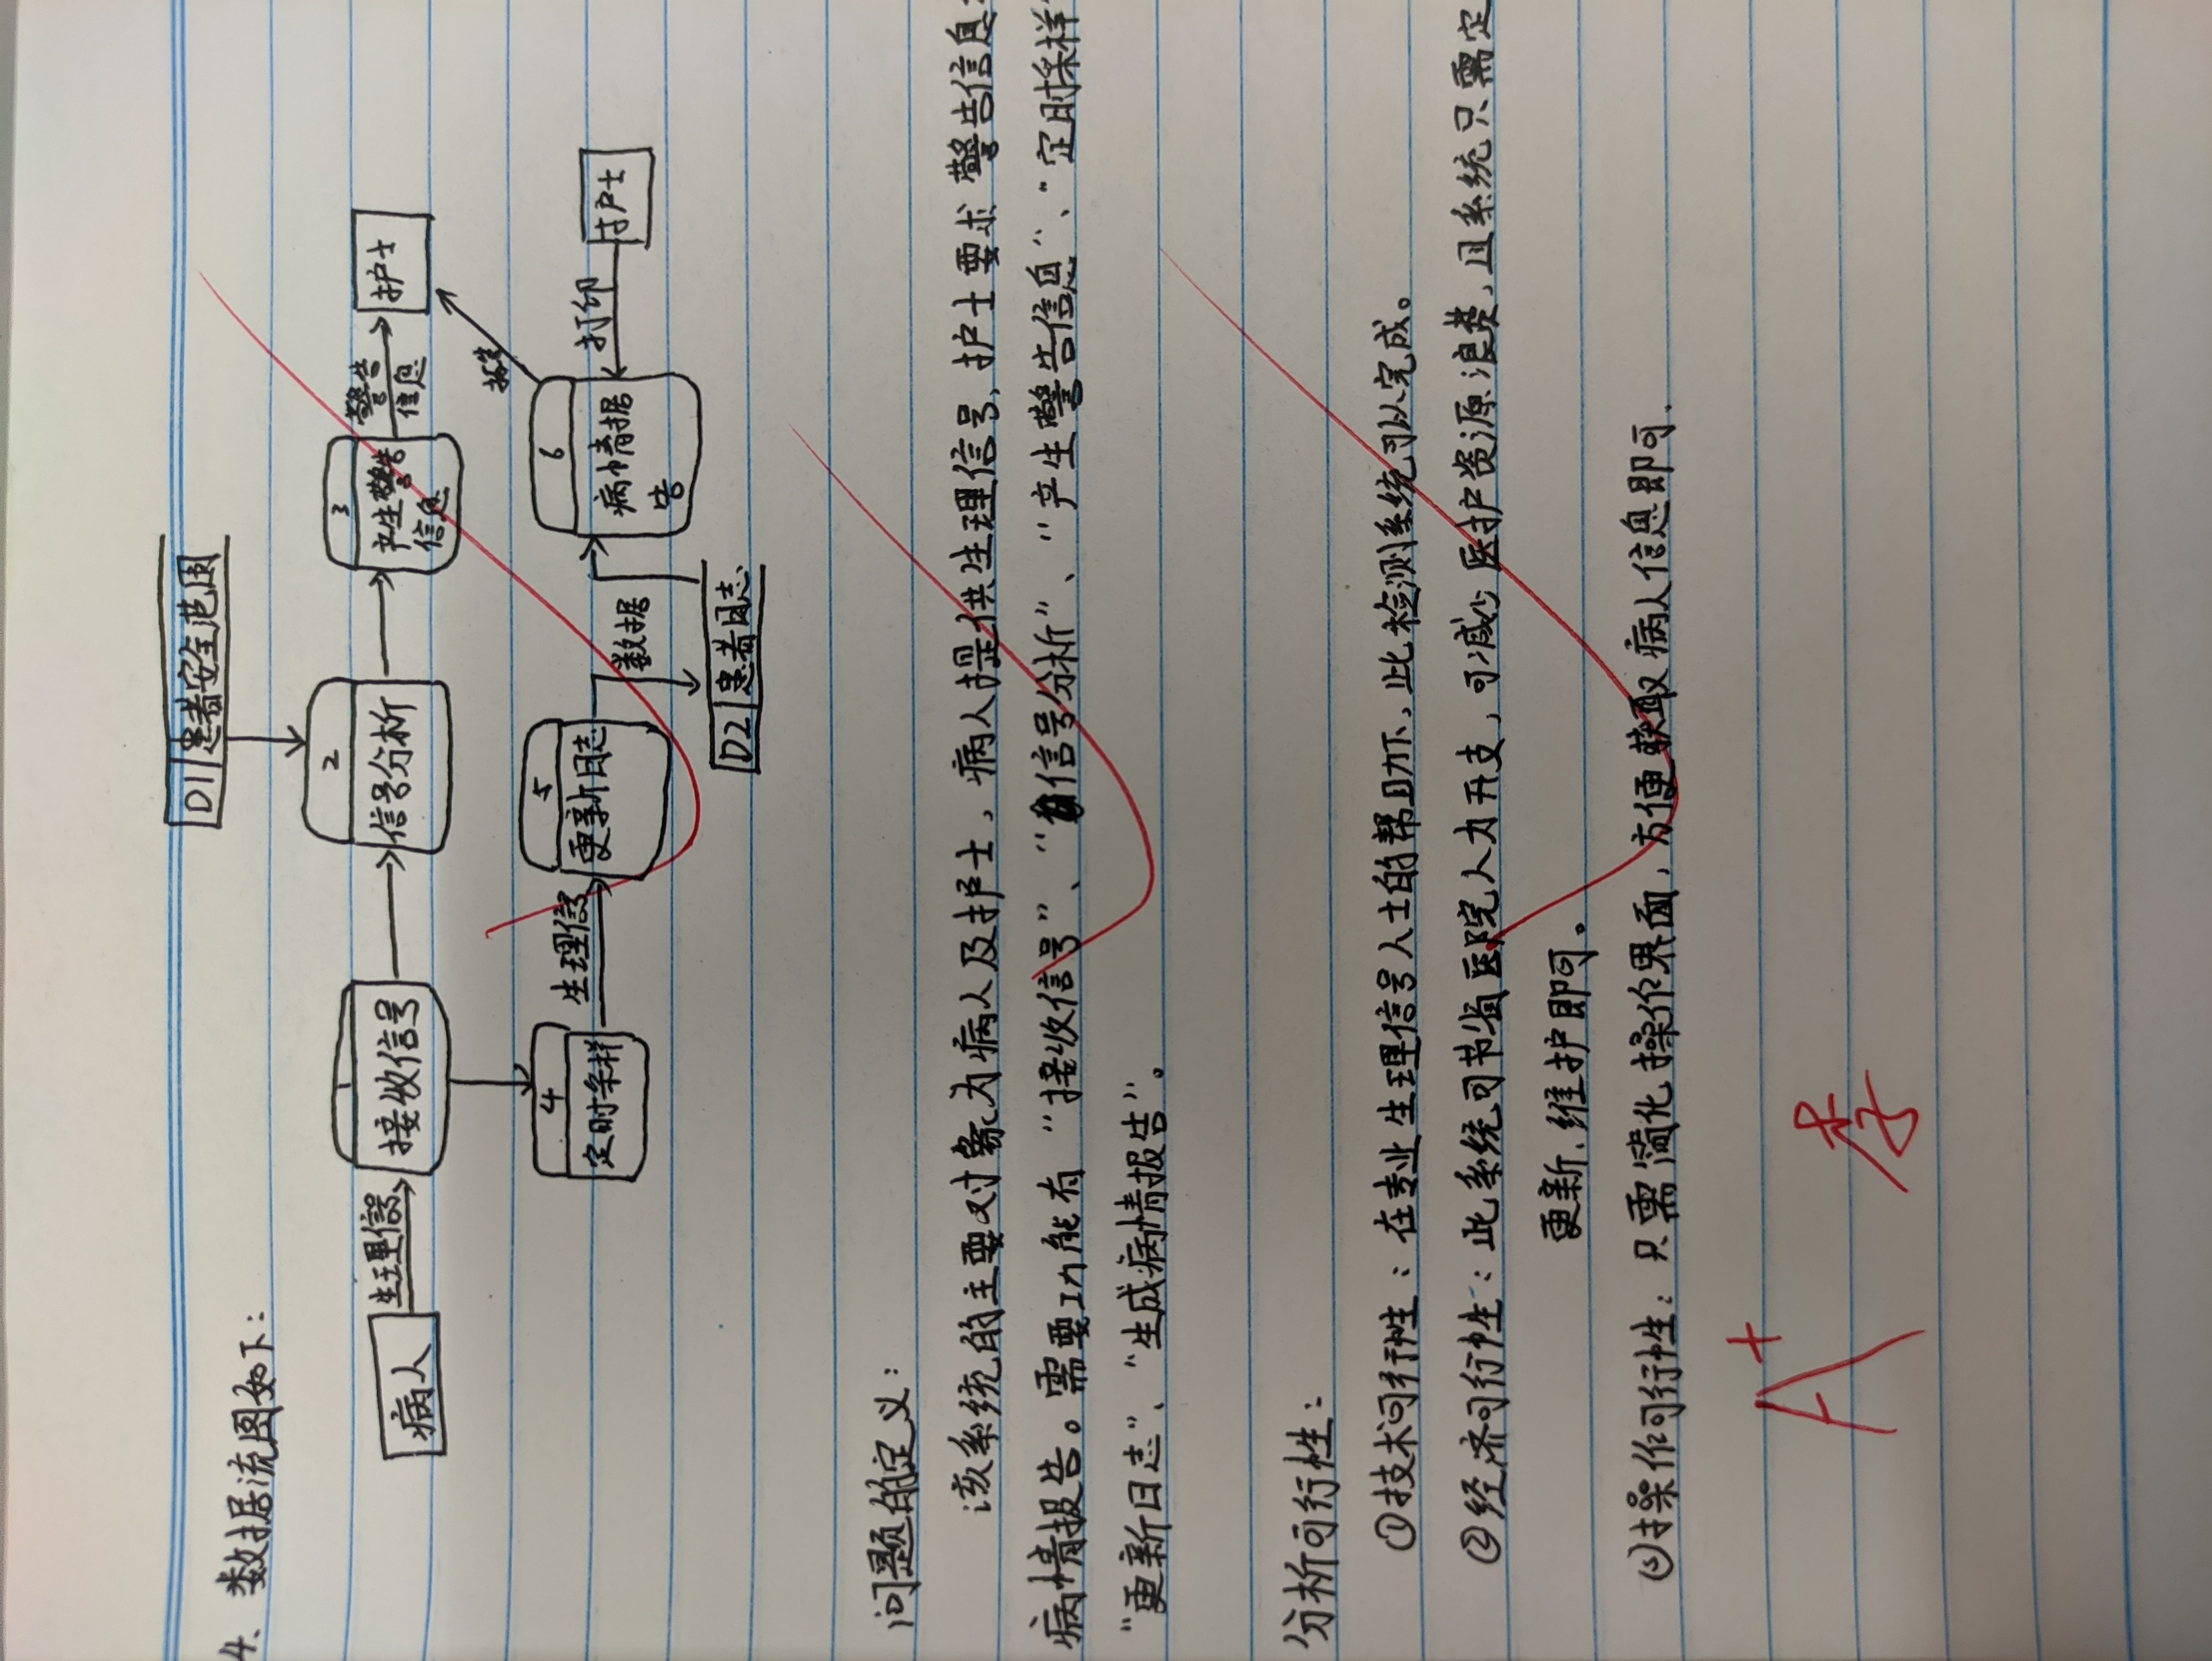 4、数据流图如下：
D1 患者安全范围
病人
生理信号
1
接收信号
2
信号分析
3
产生警告
信息
警告
信息
护士
4
定时采样
生理信号
5
更新日志
数据
D2 患者日志
6
病情报
告
报告
打印
护士
问题的定义：
该系统的主要对象为病人及护士，病人提供生理信号，护士要求警告信息
病情报告。需要功能有“接收信号”、“信号分析”、“产生警告信息”、“定时采样
“更新日志”、“生成病情报告”。
分析可行性：
①技术可行性：在专业生理信号人士的帮助下，此检测系统可以完成。
②经济可行性：此系统可节省医院人力开支，可减少医护资源浪费，且系统只需定
更新、维护即可。
③操作可行性：只需简化操作界面，方便获取病人信息即可.
A+